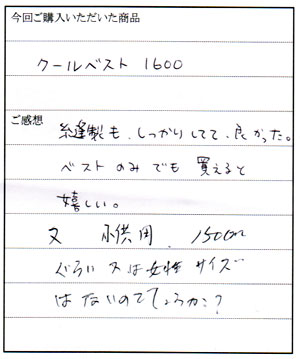 今回ご購入いただいた商品
クールベスト 1600
ご感想
縫製も、しっかりしてて、良かった。
ベストのみでも買えると
嬉しい。
又 子供用、150cm
ぐらい又は女性サイズ
はないのでしょうか？